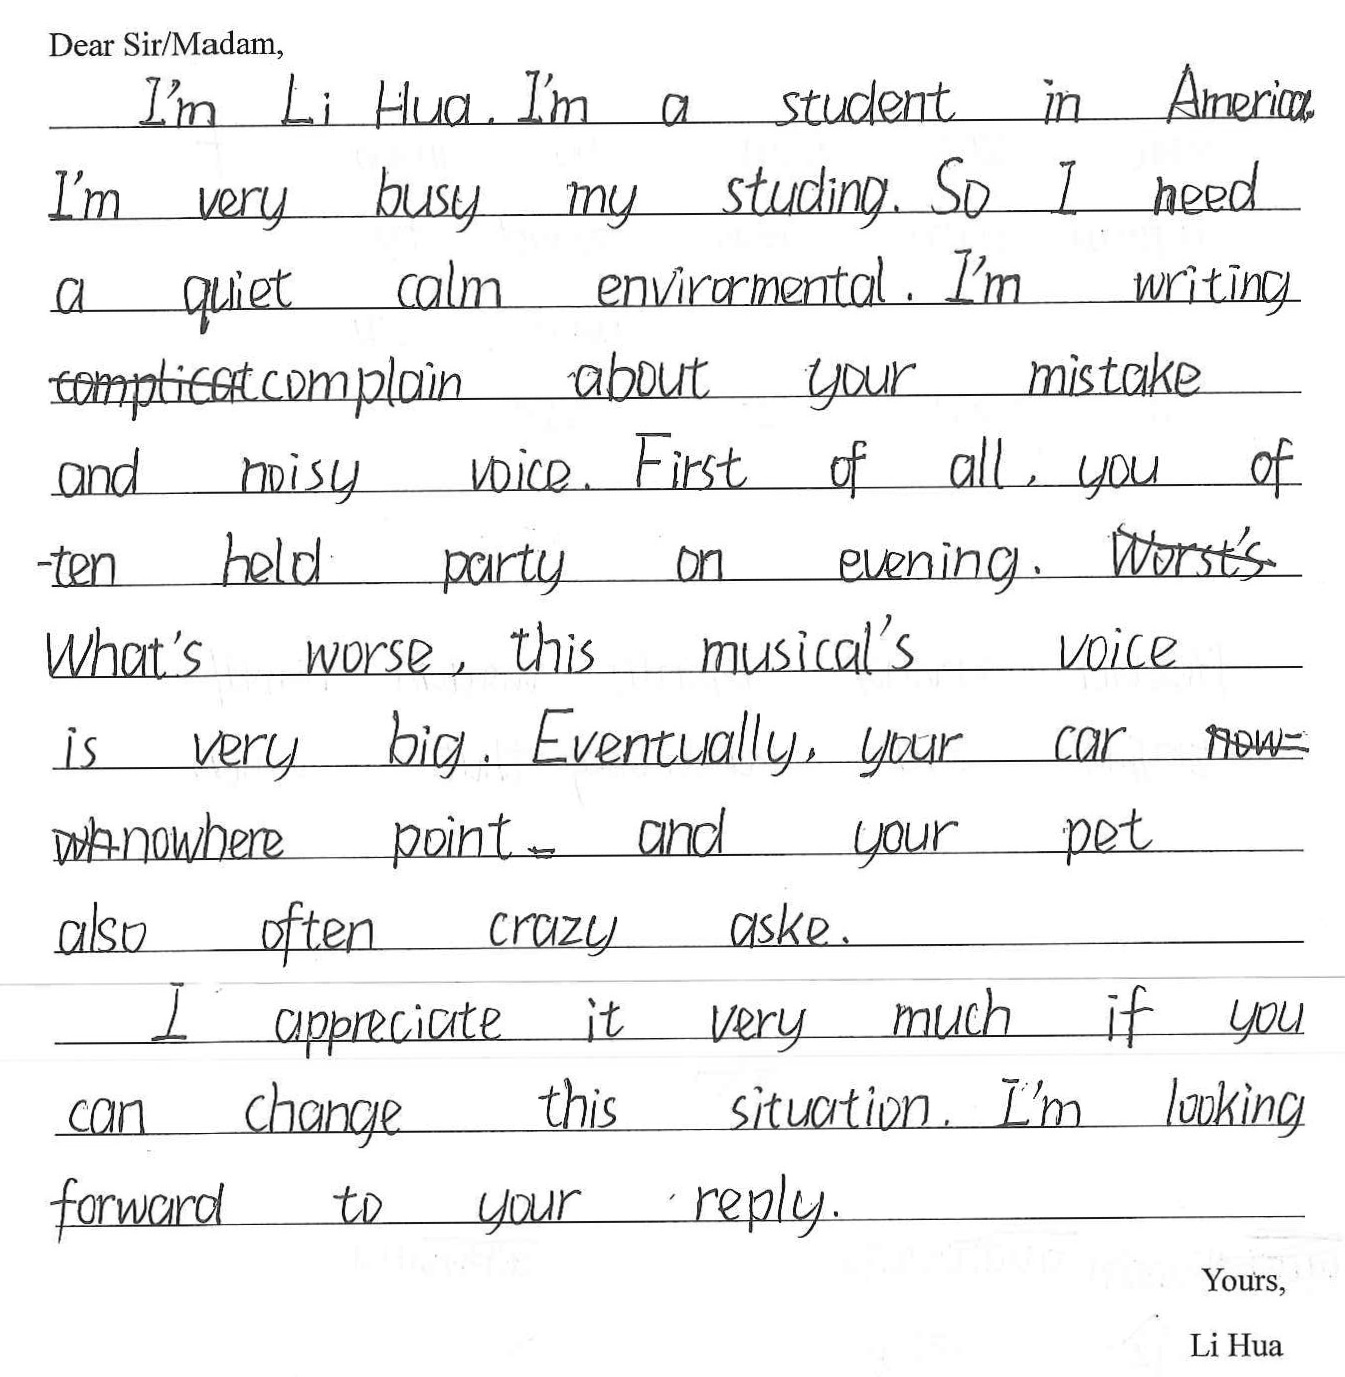 Dear Sir/Madam,
I'm Li Hua. I'm a student in America.
I'm very busy my studing. So I need
a quiet calm envirormental. I'm writing
complain about your mistake
and noisy voice. First of all, you of
-ten held party on evening. Worst's
What's worse, this musical's voice
is very big. Eventually, your car now-
wh nowhere point and your pet
also often crazy aske.
I appreciate it very much if you
can change this situation. I'm looking
forward to your reply.
Yours,
Li Hua